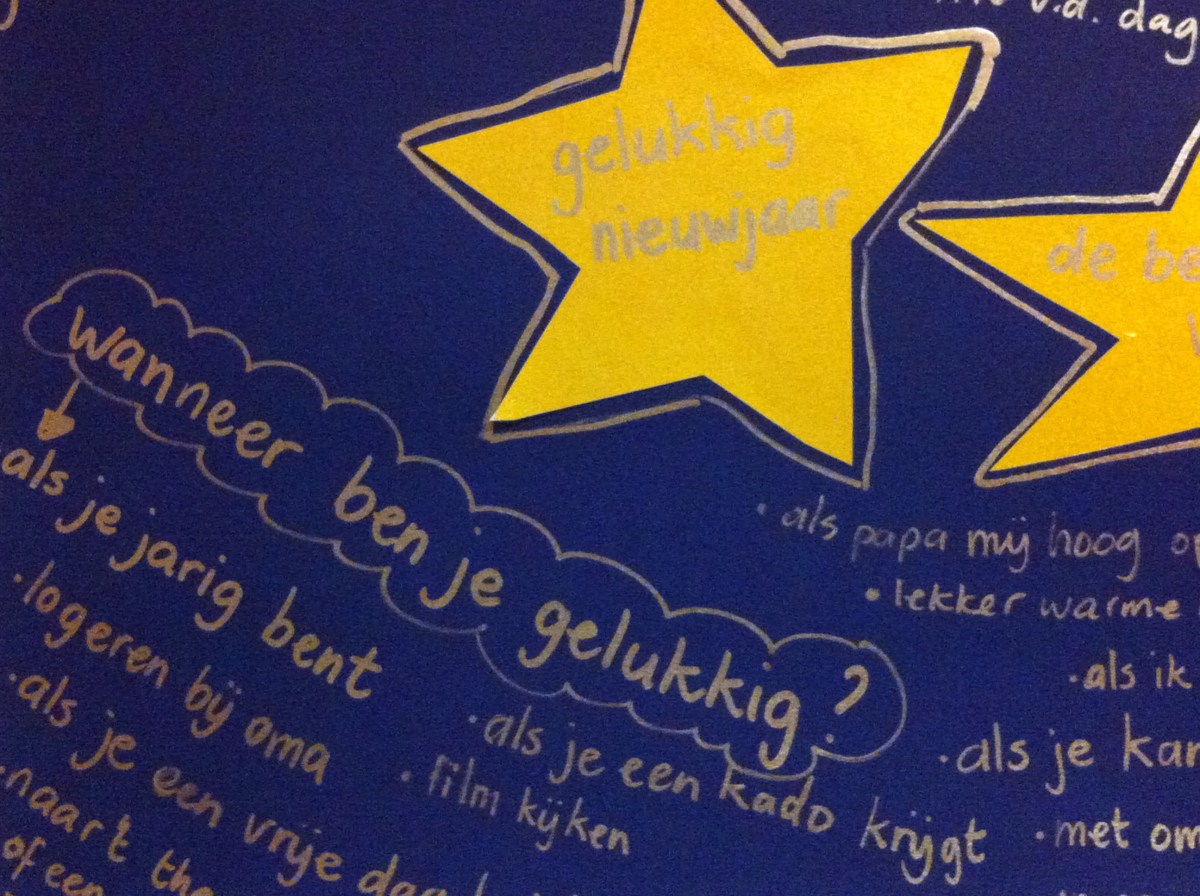 v.d. dag
gelukkig
nieuwjaar
de be
wanneer ben je gelukkig?
als je jarig bent
• logeren bij oma
• als je een vrije dag
• naar t
of een
• als je een kado krijgt
• film kijken
• als papa mij hoog
• lekker warme
• als ik
• als je kan
• met om